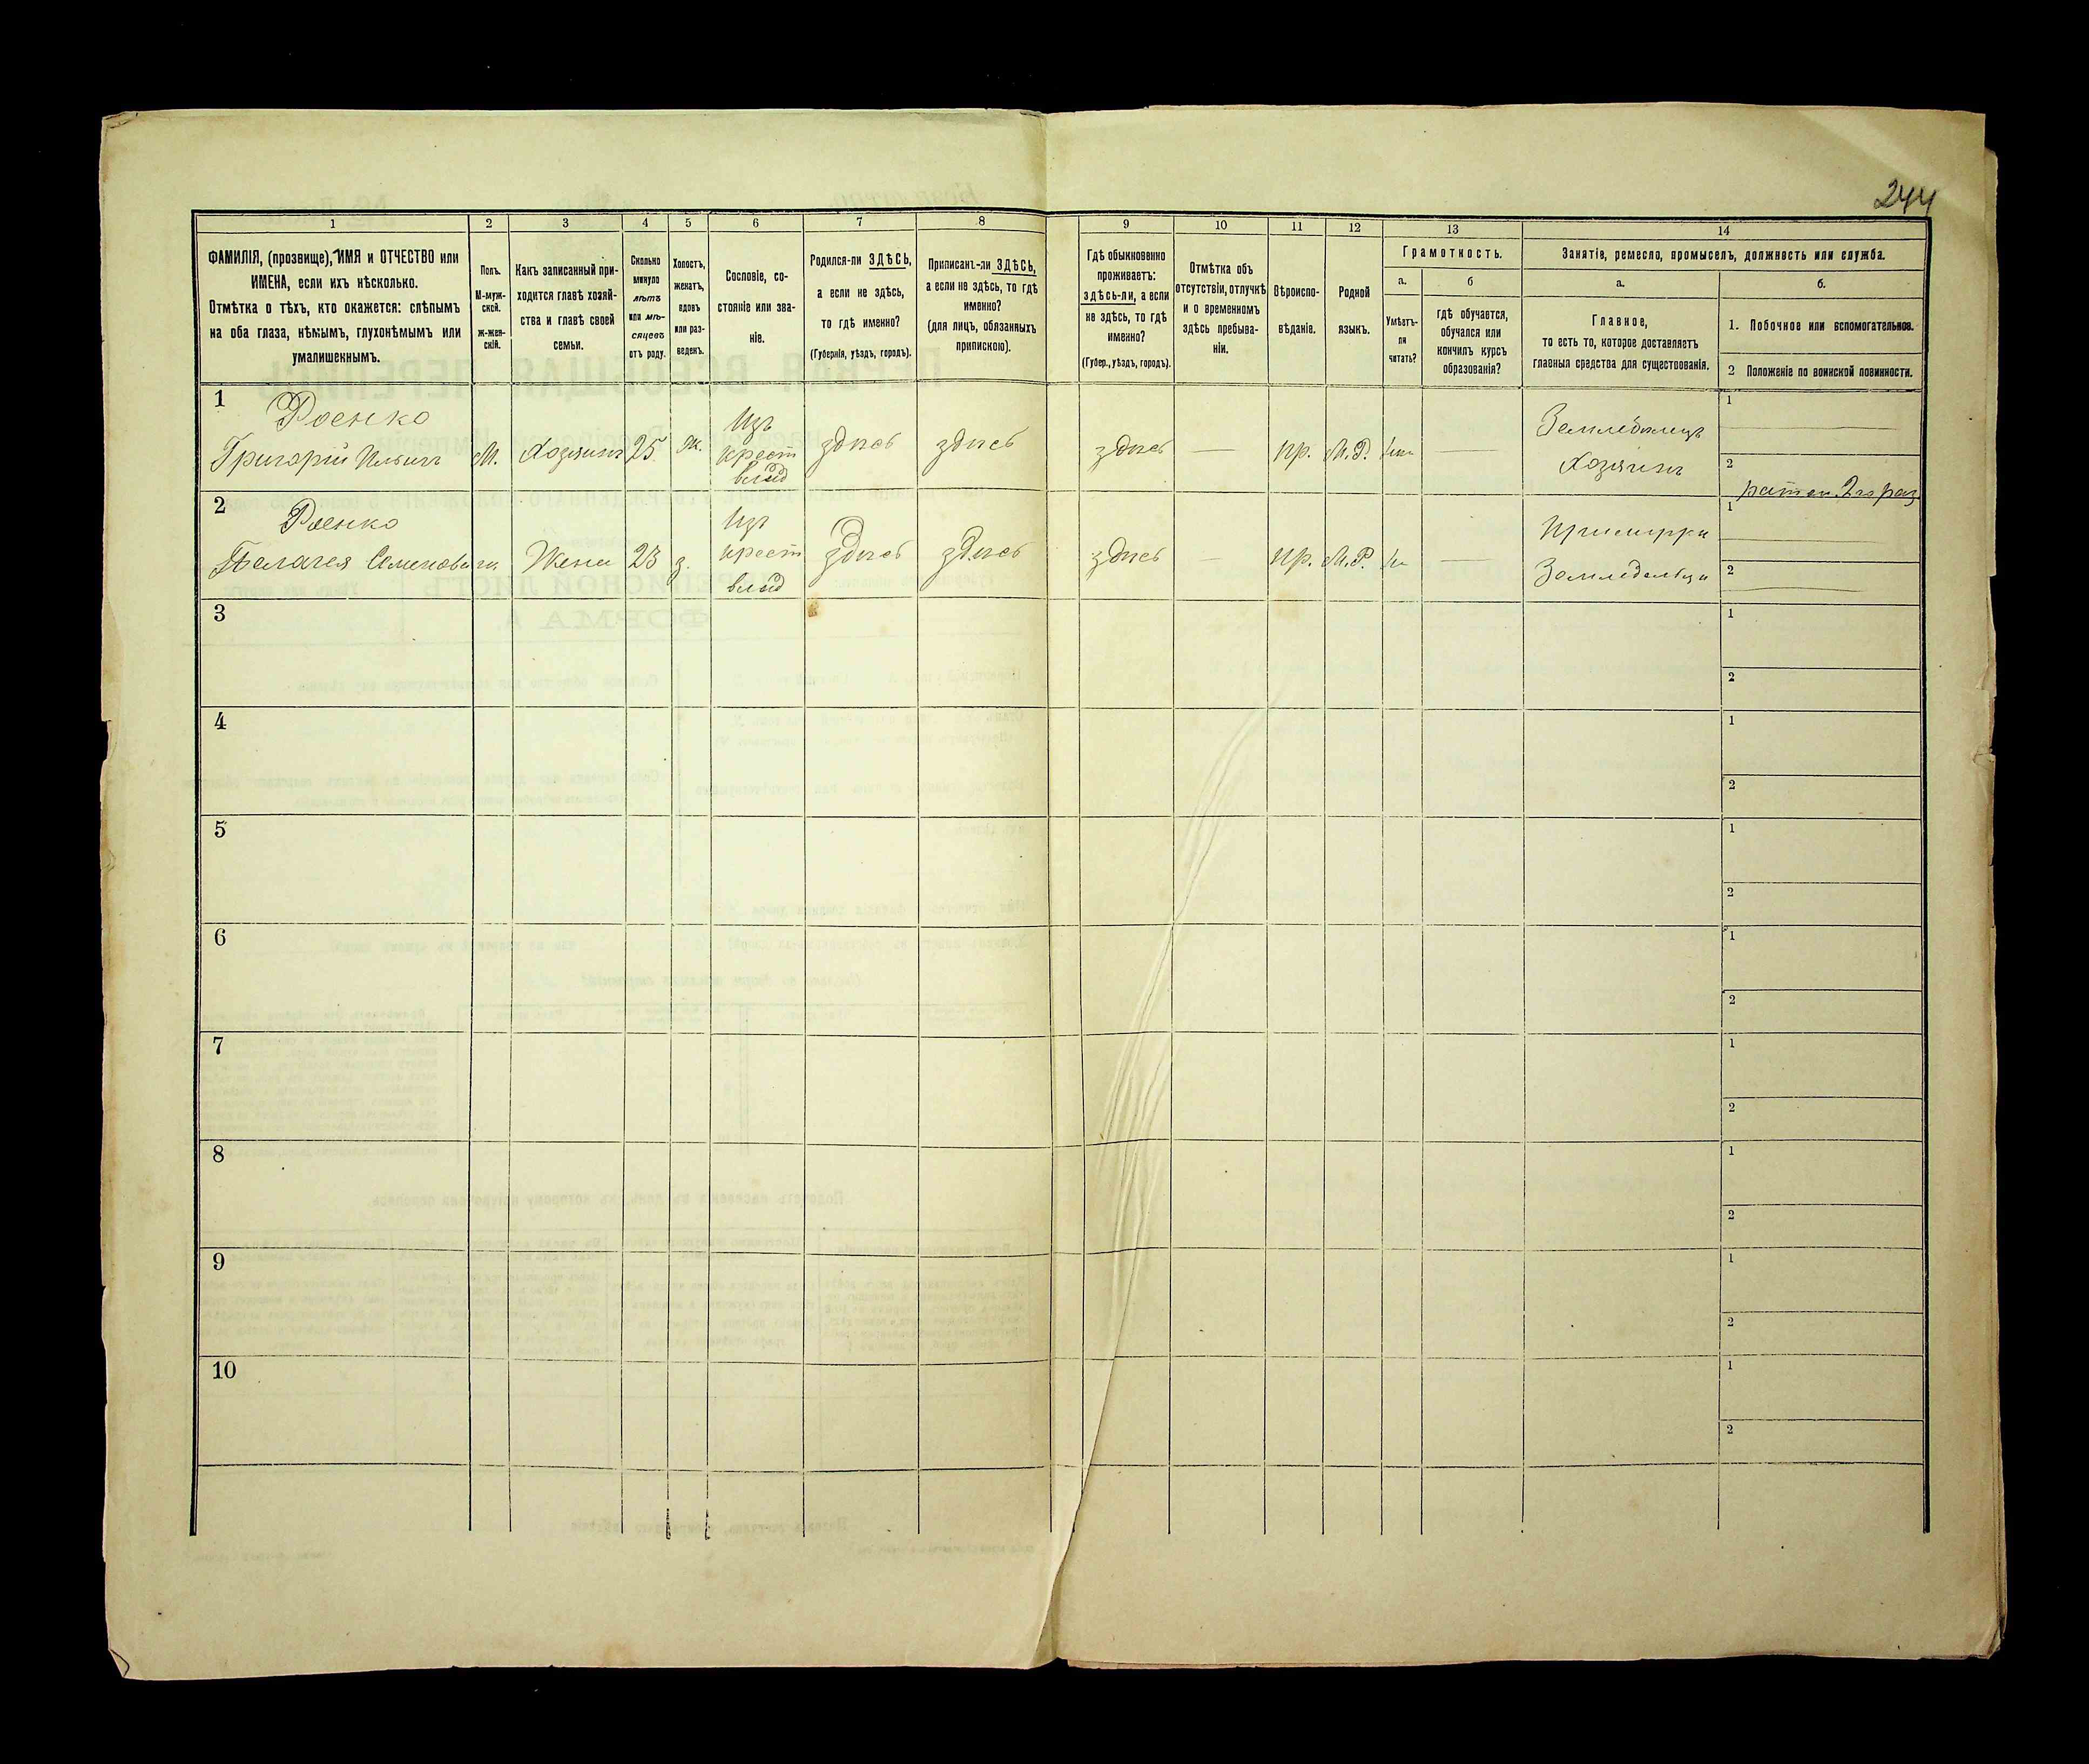 244
1 2 3 4 5 6 7 8 9 10 11 12 13 14
ФАМИЛІЯ, (прозвище), ИМЯ и ОТЧЕСТВО или
ИМЕНА, если ихъ нѣсколько.
Отмѣтка о тѣхъ, кто окажется: слѣпымъ
на оба глаза, нѣмымъ, глухонѣмымъ или
умалишеннымъ.
Полъ.
М-муж-
ской.
ж-жен-
скій.
Какъ записанный при-
ходится главѣ хозяй-
ства и главѣ своей
семьи.
Сколько
минуло
лѣтъ
или мѣ-
сяцевъ
отъ роду.
Холостъ,
женатъ,
вдовъ
или раз-
веденъ.
Сословіе, со-
стояніе или зва-
ніе.
Родился-ли ЗДѢСЬ,
а если не здѣсь,
то гдѣ именно?
(Губернія, уѣздъ, городъ).
Приписанъ-ли ЗДѢСЬ,
а если не здѣсь, то гдѣ
именно?
(для лицъ, обязанныхъ
припискою).
Гдѣ обыкновенно
проживаетъ:
здѣсь-ли, а если
не здѣсь, то гдѣ
именно?
(Губер., уѣздъ, городъ).
Отмѣтка объ
отсутствіи, отлучкѣ
и о временномъ
здѣсь пребыва-
ніи.
Вѣроиспо-
вѣданіе.
Родной
языкъ.
Грамотность.
а.
Умѣетъ-
ли
читать?
б
гдѣ обучается,
обучался или
кончилъ курсъ
образованія?
Занятіе, ремесло, промыселъ, должность или служба.
а.
Главное,
то есть то, которое доставляетъ
главныя средства для существованія.
б.
1. Побочное или вспомогательное.
2 Положеніе по воинской повинности.
1
Роенко
Григорій Ильичъ
М.
Хозяинъ
25
ж.
Изъ
крест
влад
здѣсь
здѣсь
здѣсь
—
пр.
М.Р.
—
Земледѣлецъ
Хозяинъ
1
2
ратн. 2го раз
2
Роенко
Пелагея Семенова
ж.
Жена
23
з.
Изъ
крест
влад
здѣсь
здѣсь
здѣсь
—
пр.
М.Р.
—
При мужѣ
1
2
3
1
2
4
1
2
5
1
2
6
1
2
7
1
2
8
1
2
9
1
2
10
1
2